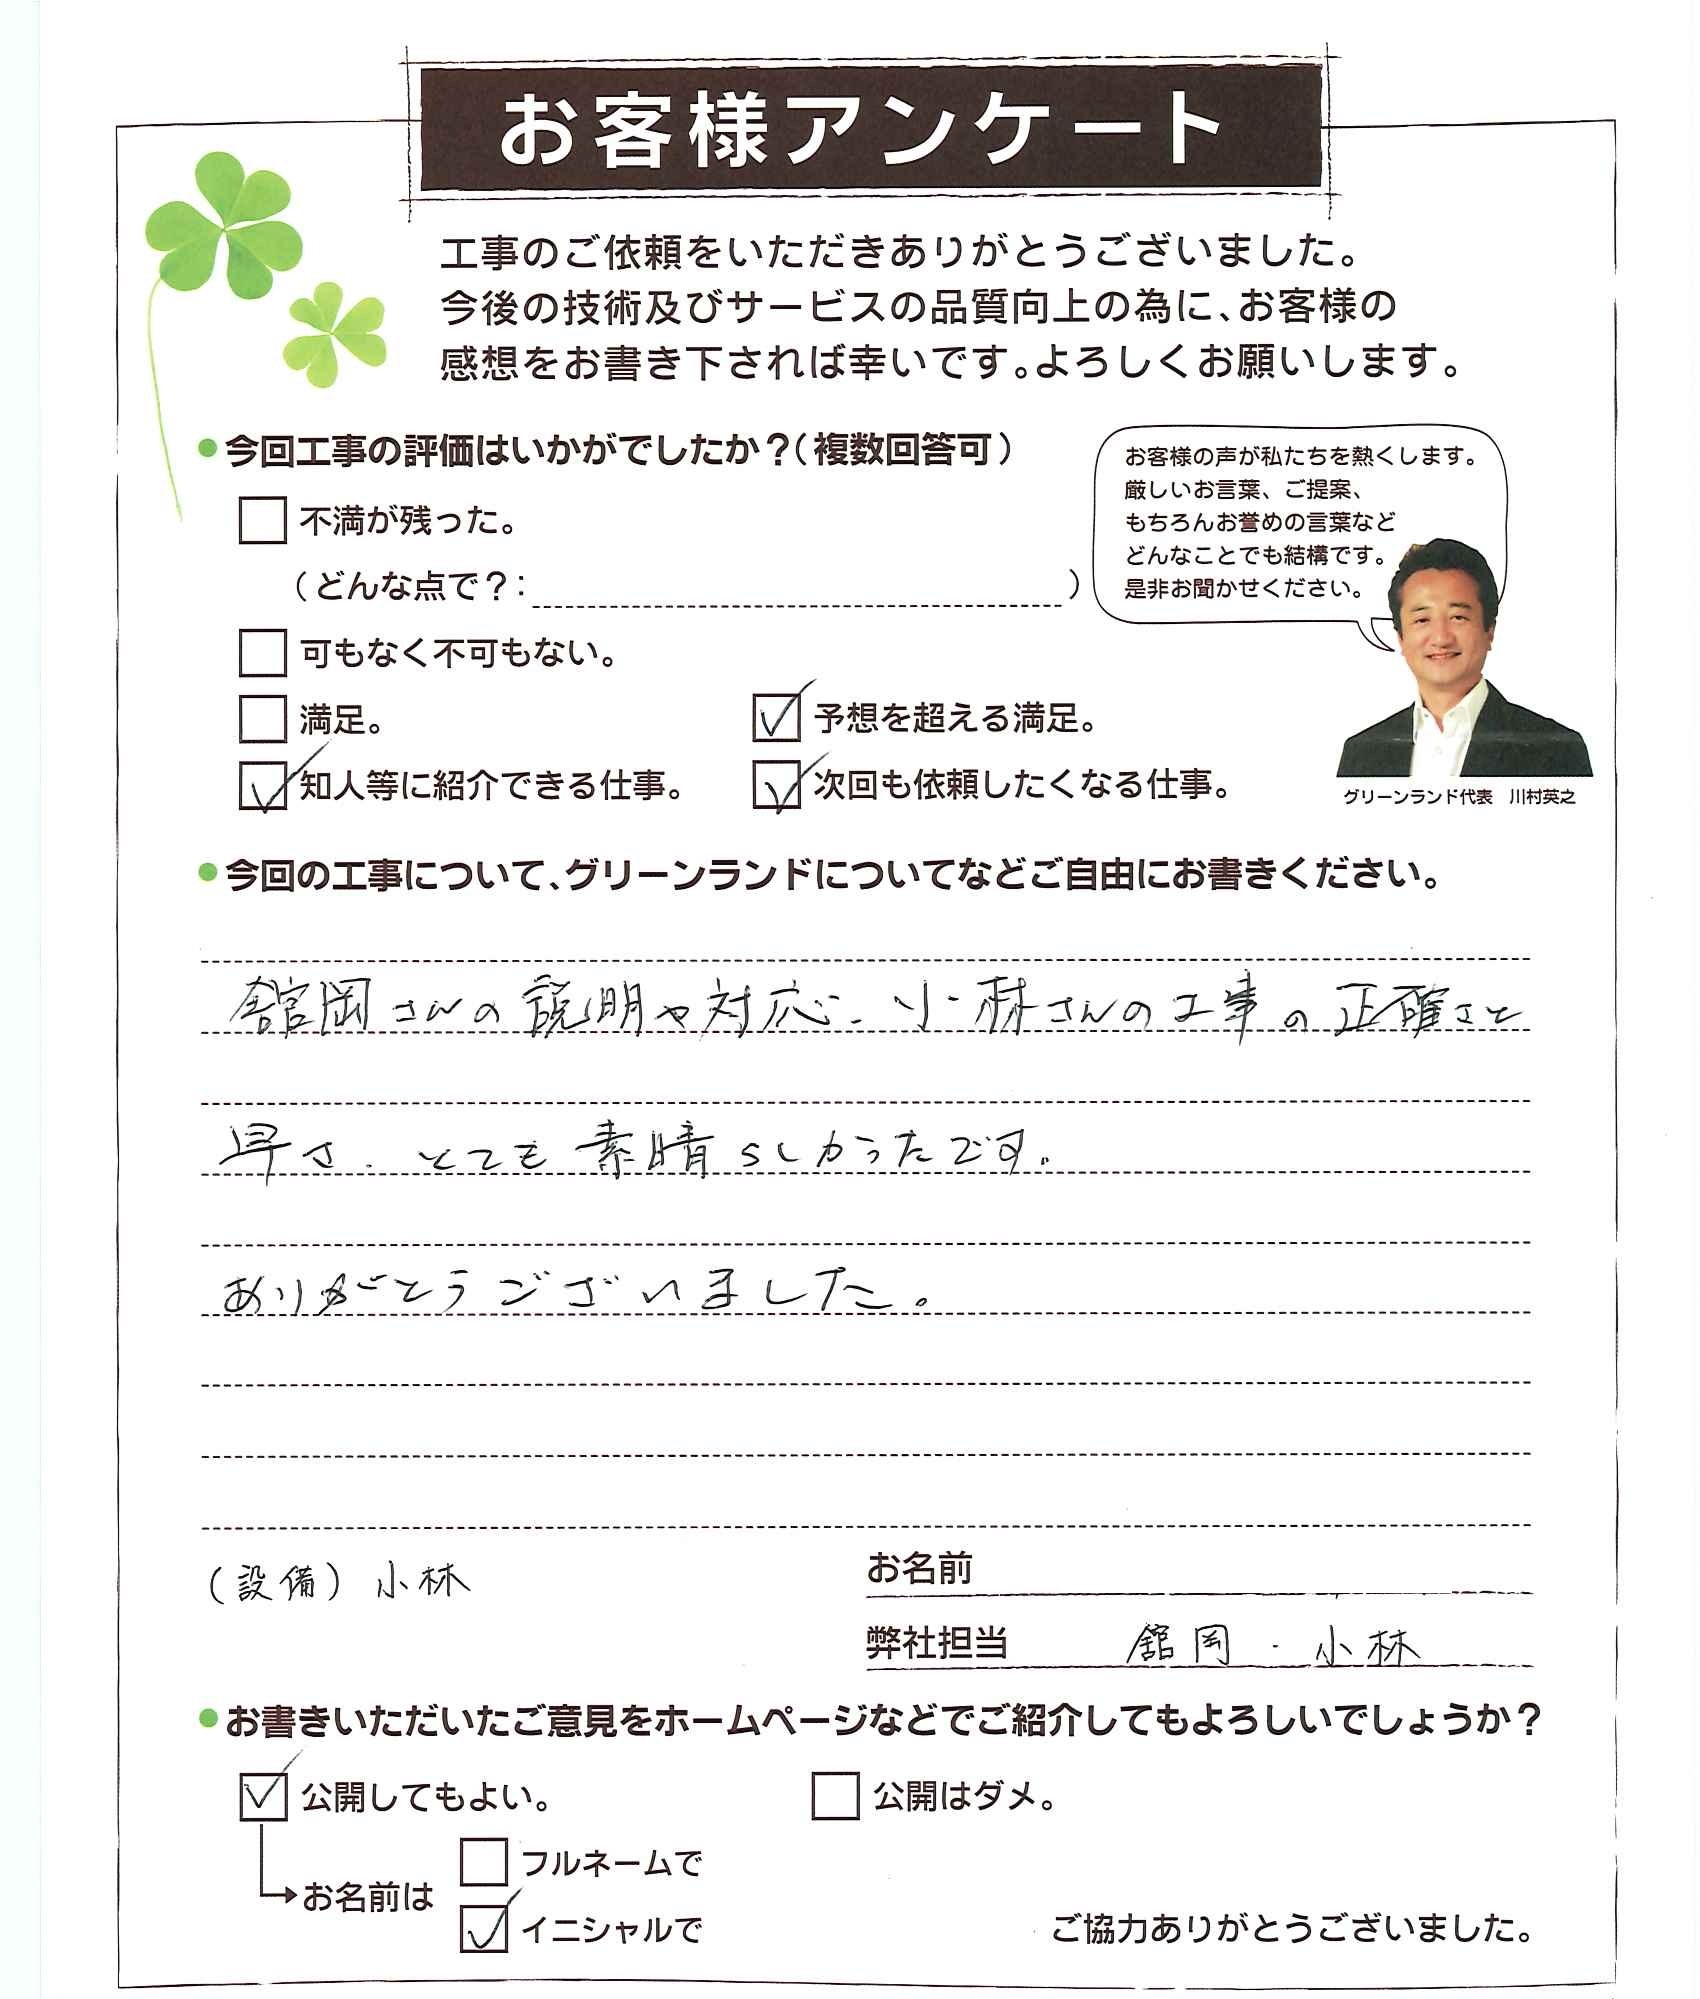 お客様アンケート
工事のご依頼をいただきありがとうございました。
今後の技術及びサービスの品質向上の為に、お客様の
感想をお書き下されば幸いです。よろしくお願いします。
●今回工事の評価はいかがでしたか？（複数回答可）
不満が残った。
（どんな点で？：　）
可もなく不可もない。
満足。
予想を超える満足。
知人等に紹介できる仕事。
次回も依頼したくなる仕事。
お客様の声が私たちを熱くします。
厳しいお言葉、ご提案、
もちろんお誉めの言葉など
どんなことでも結構です。
是非お聞かせください。
グリーンランド代表　川村英之
●今回の工事について、グリーンランドについてなどご自由にお書きください。
舘岡さんの説明や対応、小林さんの工事の正確さと
早さ、とても素晴らしかったです。
ありがとうございました。
（設備）小林
お名前
弊社担当　舘岡・小林
●お書きいただいたご意見をホームページなどでご紹介してもよろしいでしょうか？
公開してもよい。
公開はダメ。
お名前は
フルネームで
イニシャルで
ご協力ありがとうございました。